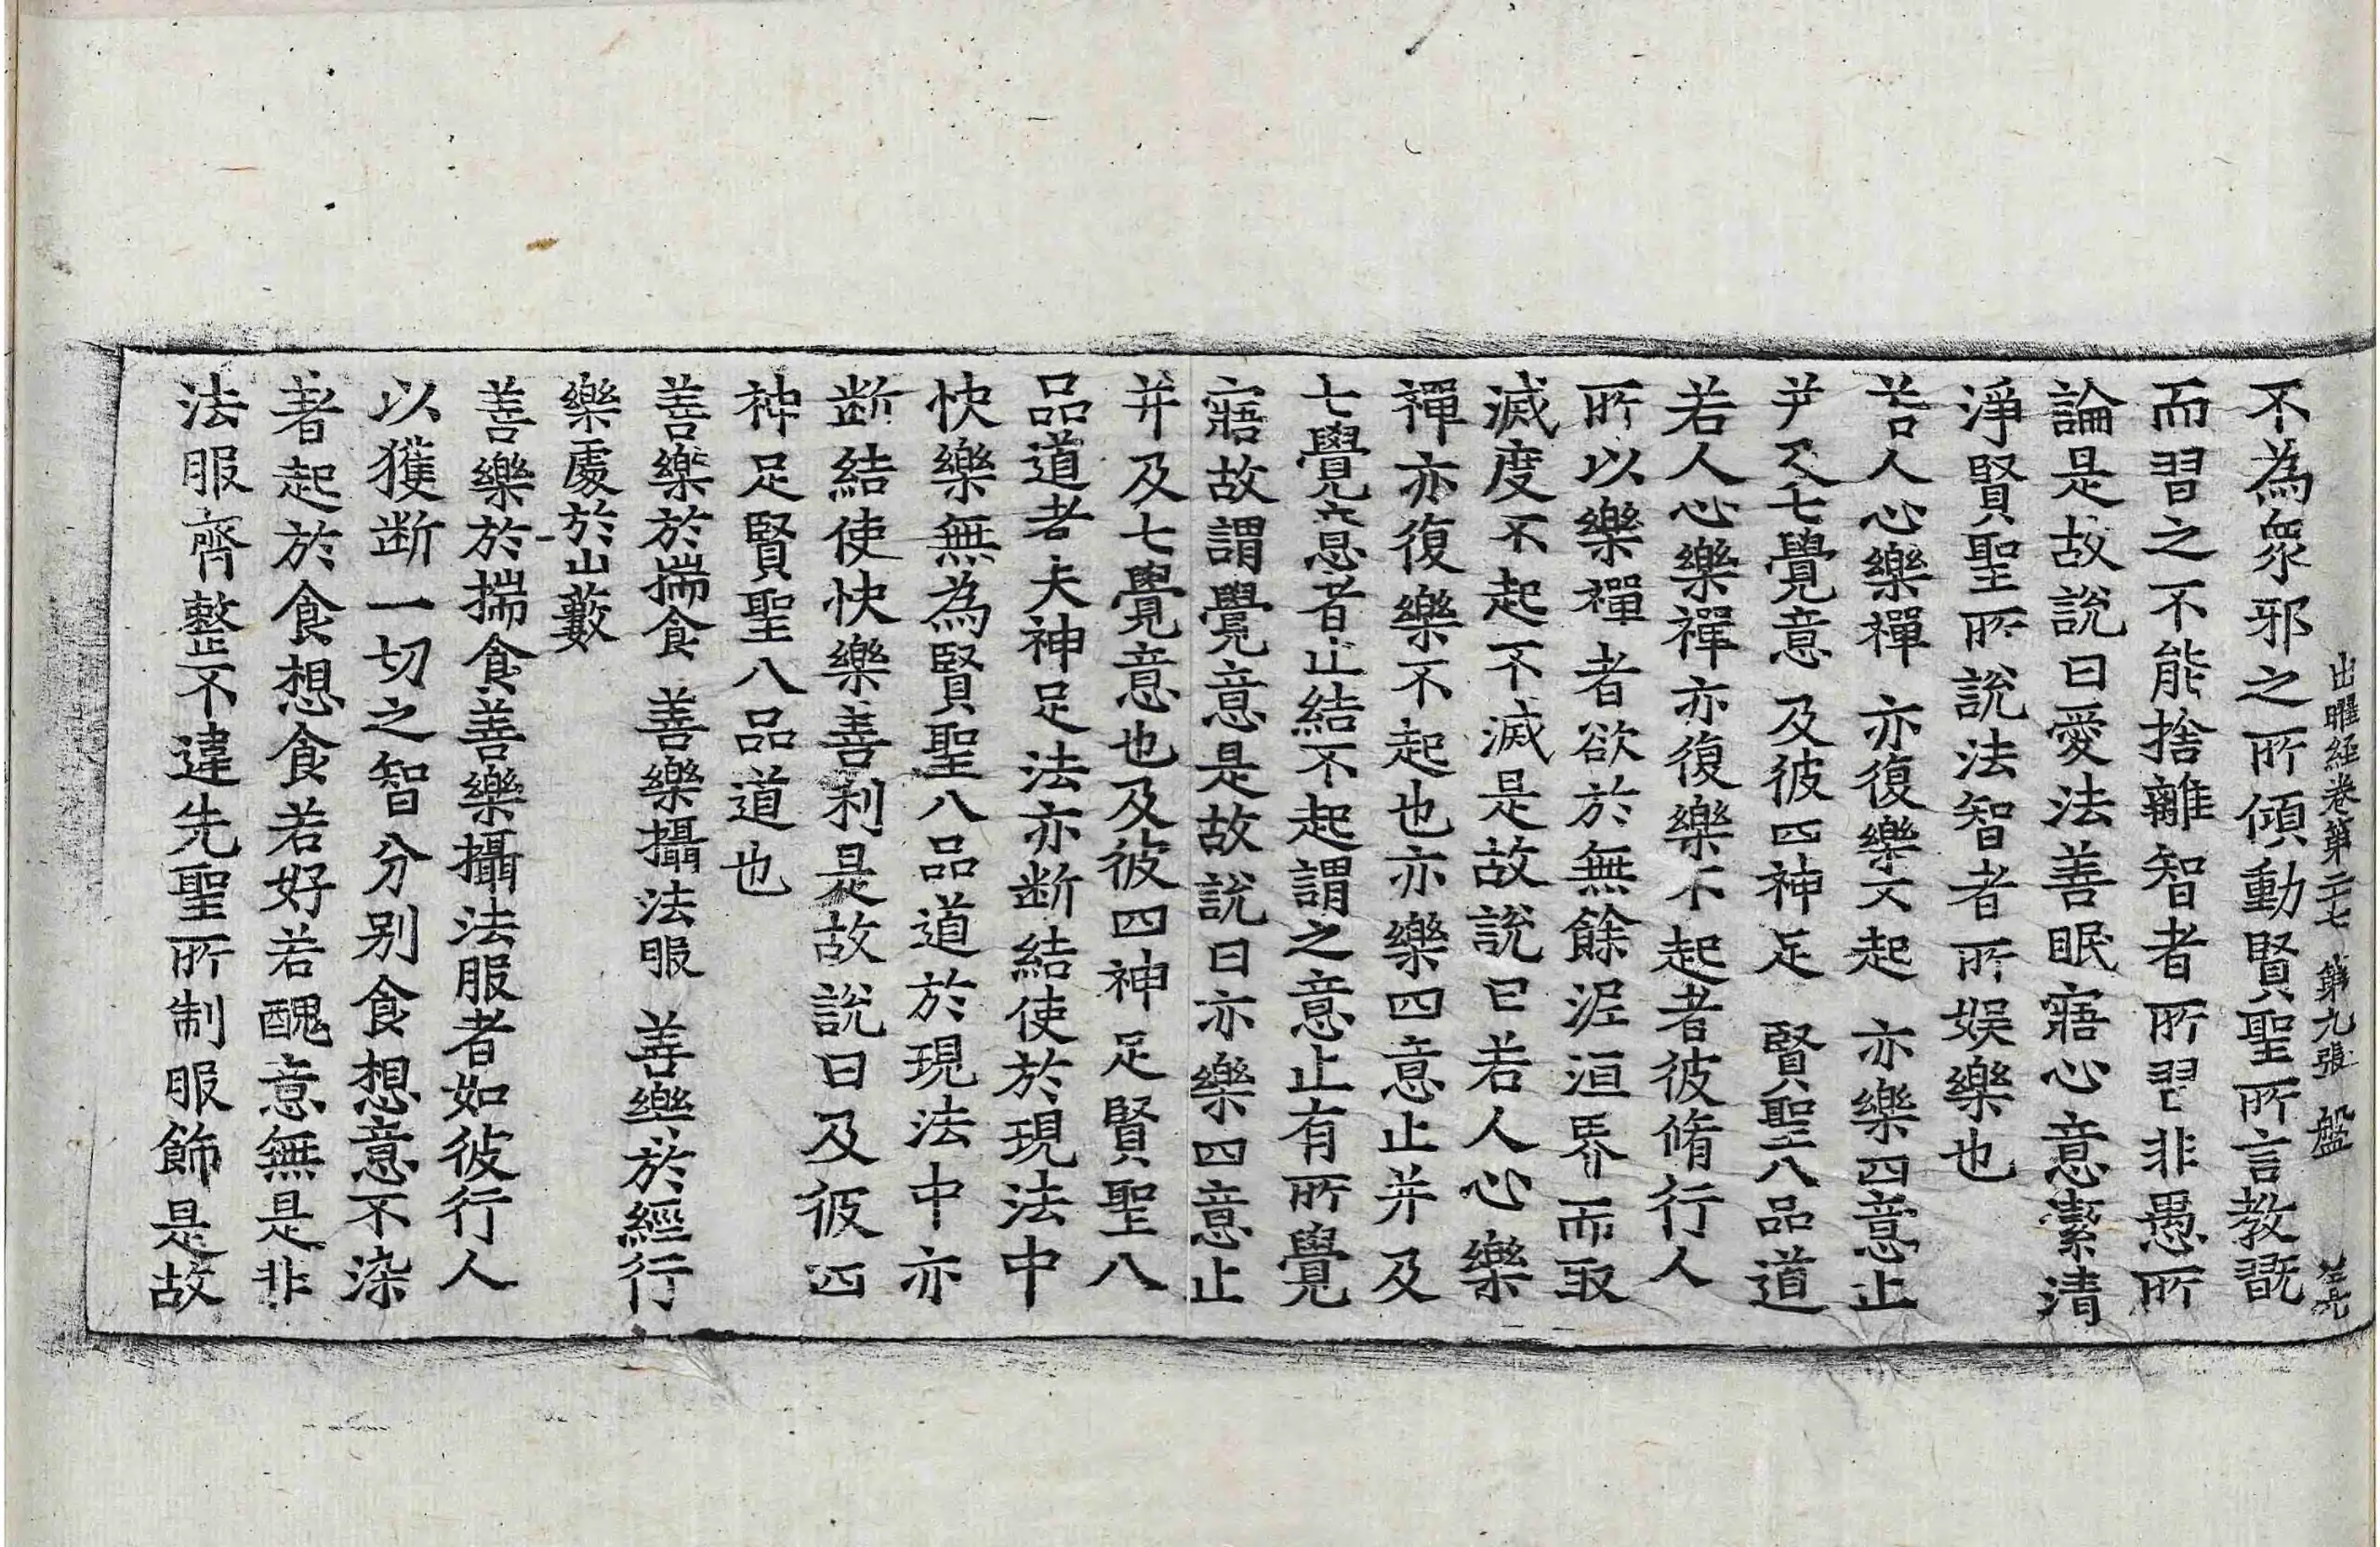 出曜經卷第二十七 第九張 盤
不為衆邪之所傾動賢聖所言教翫
而習之不能捨離智者所習非愚所
論是故說曰愛法善眠寤心意潔清
淨賢聖所說法智者所娛樂也
若人心樂禪 亦復樂不起 亦樂四意止
并及七覺意 及彼四神足 賢聖八品道
若人心樂禪亦復樂不起者彼脩行人
所以樂禪者欲於無餘泥洹界而取
滅度不起不滅是故說曰若人心樂
禪亦復樂不起也亦樂四意止并及
七覺意者止結不起謂之意止有所覺
寤故謂覺意是故說曰亦樂四意止
并及七覺意也及彼四神足賢聖八
品道者夫神足法亦断結使於現法中
快樂無為賢聖八品道於現法中亦
断結使快樂善利是故說曰及彼四
神足賢聖八品道也
善樂於揣食 善樂攝法服 善樂於經行
樂處於山藪
善樂於揣食善樂攝法服者如彼行人
以獲断一切之智分別食想意不染
著起於食想食若好若醜意無是非
法服齊整不違先聖所制服飾是故